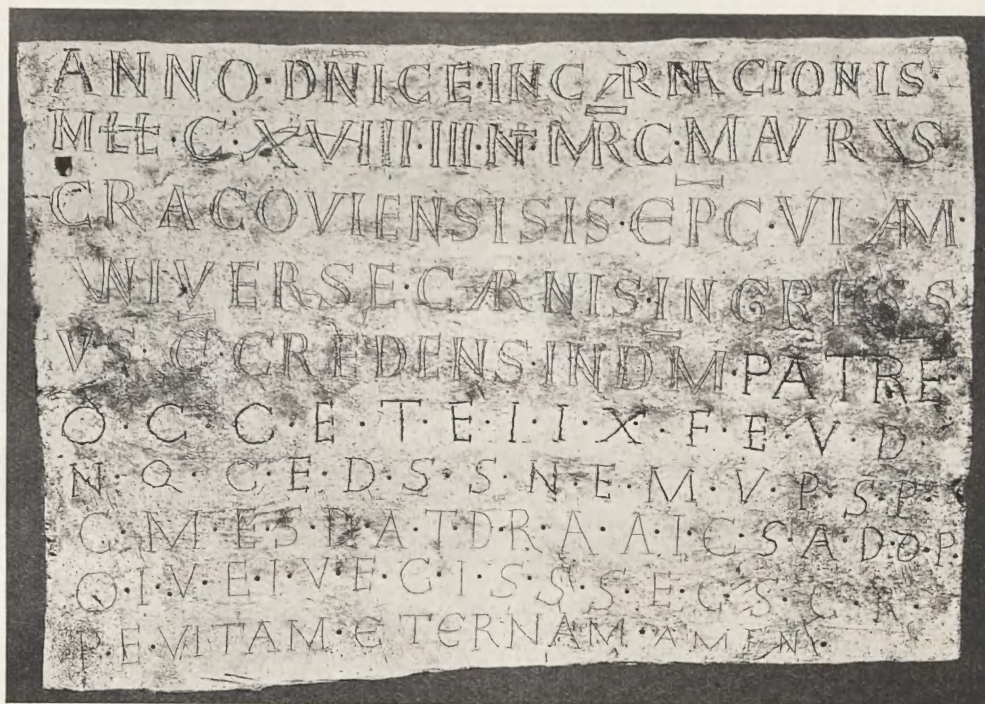 ANNO·DNICE·INCARNACIONIS·
MILL·C·XVIIII·III·N·MRC·MAVRVS
CRACOVIENSISIS·EPC·VIAM·
VNIVERSE·CARNIS·INGRESS
VS·E·CREDENS·INDM·PATRE
O·C·C·E·T·E·I·I·X·F·E·V·D
N·Q·C·E·D·S·S·N·E·M·V·P·S·P·
C·M·E·S·D·A·T·D·R·A·A·I·C·S·A·D·O·P·
Q·I·V·E·I·V·E·C·I·S·S·S·E·C·S·C·R·
P·E·VITAM·ETERNAM·AMEN·